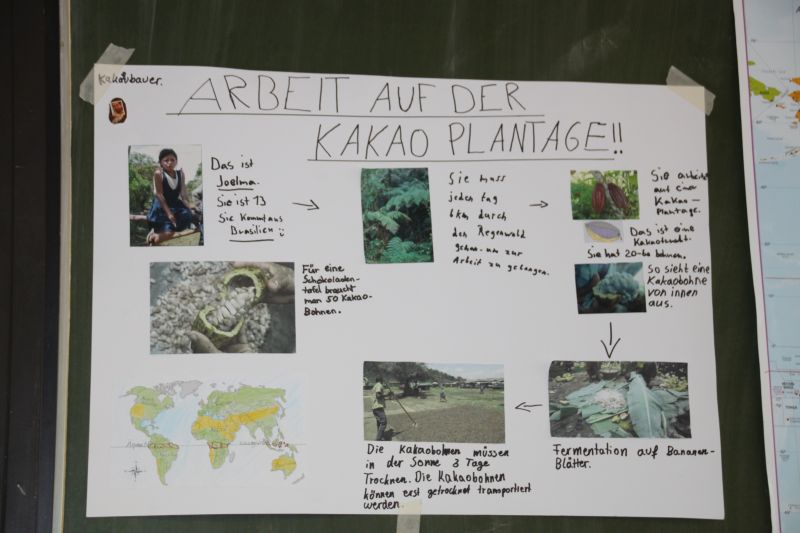 Kakaobauer.
ARBEIT AUF DER
KAKAO PLANTAGE!!
Das ist
Joelma.
Sie ist 13
Sie kommt aus
Brasilien
Sie muss
jeden tag
6km durch
den Regenwald
gehen um zur
Arbeit zu gelangen.
Sie arbeitet
auf einer
Kakao-
Plantage.
Das ist eine
Kakaofrucht.
Sie hat 20-60 bohnen.
So sieht eine
Kakaobohne
von innen
aus.
Für eine
Schokoladen-
tafel braucht
man 50 Kakao-
Bohnen.
Fermentation auf Bananen-
Blätter.
Die Kakaobohnen müssen
in der Sonne 3 Tage
Trocknen. Die Kakaobohnen
können erst getrocknet transportiert
werden.